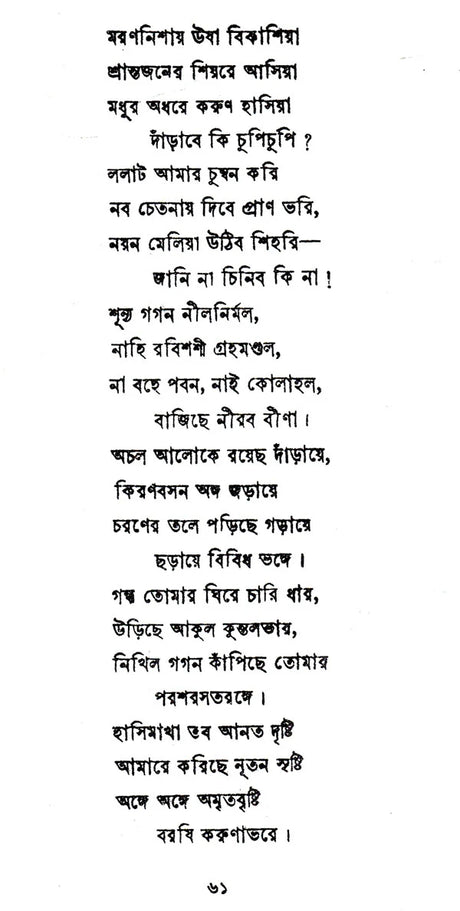 মরণনিশায় উষা বিকাশিয়া
শ্রান্তজনের শিয়রে আসিয়া
মধুর অধরে করুণ হাসিয়া
দাঁড়াবে কি চুপিচুপি ?
ললাট আমার চুম্বন করি
নব চেতনায় দিবে প্রাণ ভরি,
নয়ন মেলিয়া উঠিব শিহরি—
জানি না চিনিব কি না !
শূন্য গগন নীলনির্মল,
নাহি রবিশশী গ্রহমণ্ডল,
না বহে পবন, নাই কোলাহল,
বাজিছে নীরব বীণা ।
অচল আলোকে রয়েছ দাঁড়ায়ে,
কিরণবসন অঙ্গ জড়ায়ে
চরণের তলে পড়িছে গড়ায়ে
ছড়ায়ে বিবিধ ভঙ্গে ।
গন্ধ তোমার ঘিরে চারি ধার,
উড়িছে আকুল কুন্তলভার,
নিখিল গগন কাঁপিছে তোমার
পরশরসতরঙ্গে ।
হাসিমাখা তব আনত দৃষ্টি
আমারে করিছে নূতন সৃষ্টি
অঙ্গে অঙ্গে অমৃতবৃষ্টি
বরষি করুণাভরে ।
৬১